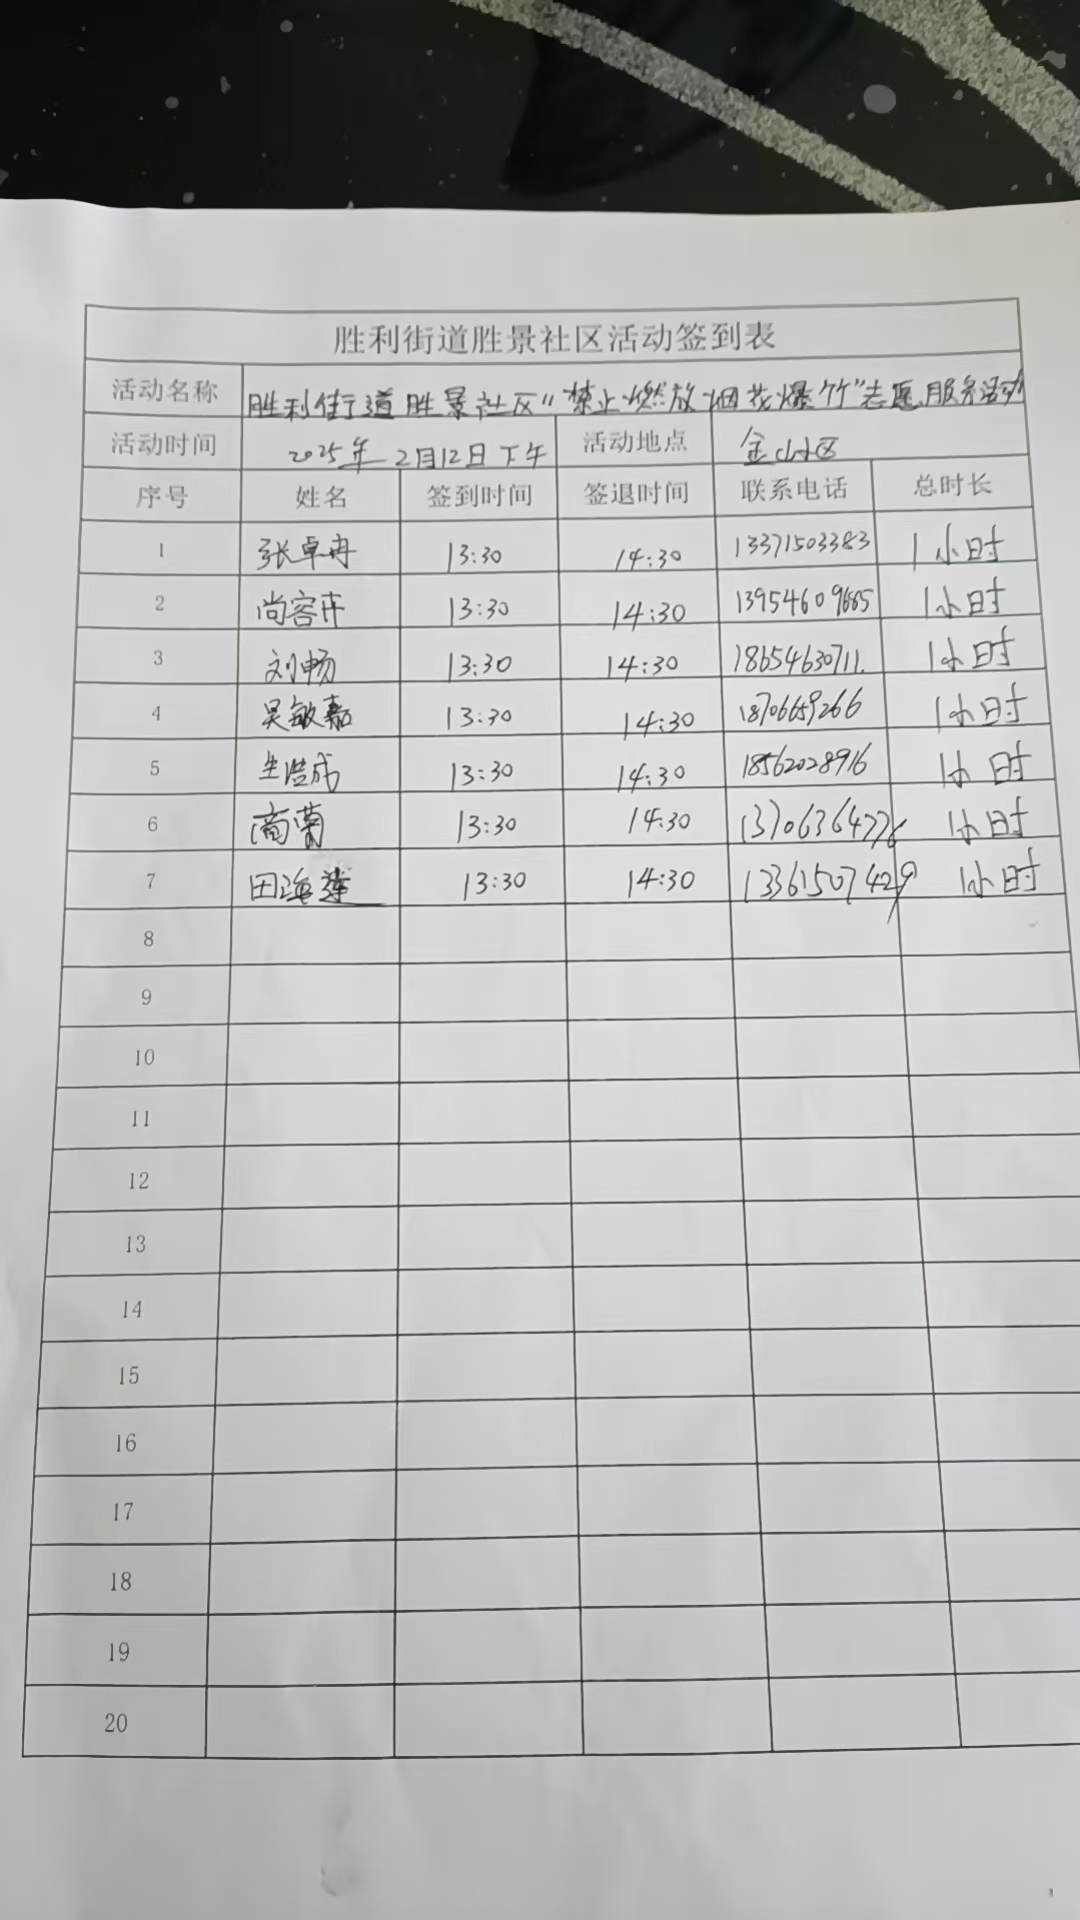 胜利街道胜景社区活动签到表
活动名称 胜利街道胜景社区"禁止燃放烟花爆竹"志愿服务活动
活动时间 2025年2月12日下午 活动地点 金山小区
序号 姓名 签到时间 签退时间 联系电话 总时长
1 张卓冉 13:30 14:30 13371503383 1小时
2 尚容卉 13:30 14:30 13954609665 1小时
3 刘畅 13:30 14:30 18654630711 1小时
4 吴敏嘉 13:30 14:30 18706659266 1小时
5 生浩成 13:30 14:30 18562028916 1小时
6 商菊 13:30 14:30 13706364776 1小时
7 田海莲 13:30 14:30 13361507429 1小时
8
9
10
11
12
13
14
15
16
17
18
19
20